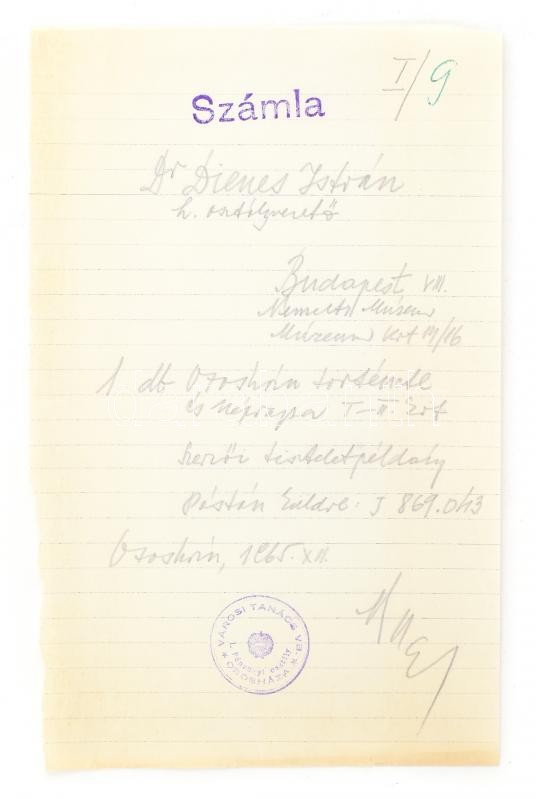 I/9
Számla
Dr Dienes István
h. osztályvezető
Budapest VIII.
Nemzeti Múzeum
Múzeum krt 14/16
1 db Orosháza története
és néprajza I-II. köt
szerzői tiszteletpéldány
Postán küldve: J 869.043
Orosháza, 1965. XII.
VÁROSI TANÁCS VB. OROSHÁZA
I. Pénzügyi osztály